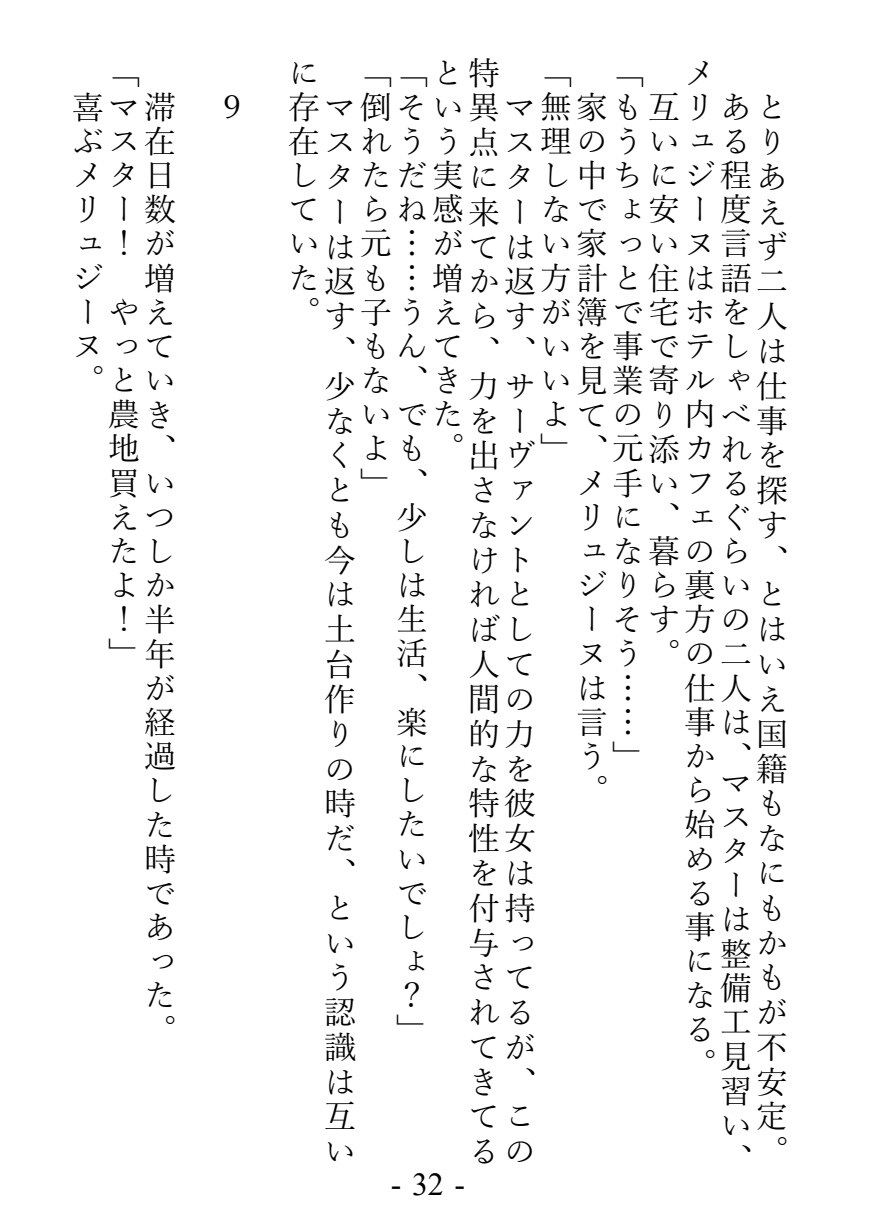 とりあえず二人は仕事を探す、とはいえ国籍もなにもかもが不安定。
ある程度言語をしゃべれるぐらいの二人は、マスターは整備工見習い、
メリュジーヌはホテル内カフェの裏方の仕事から始める事になる。
互いに安い住宅で寄り添い、暮らす。
「もうちょっとで事業の元手になりそう……」
家の中で家計簿を見て、メリュジーヌは言う。
「無理しない方がいいよ」
マスターは返す、サーヴァントとしての力を彼女は持ってるが、この
特異点に来てから、力を出さなければ人間的な特性を付与されてきてる
という実感が増えてきた。
「そうだね……うん、でも、少しは生活、楽にしたいでしょ？」
「倒れたら元も子もないよ」
マスターは返す、少なくとも今は土台作りの時だ、という認識は互い
に存在していた。
9
滞在日数が増えていき、いつしか半年が経過した時であった。
「マスター！　やっと農地買えたよ！」
喜ぶメリュジーヌ。
- 32 -